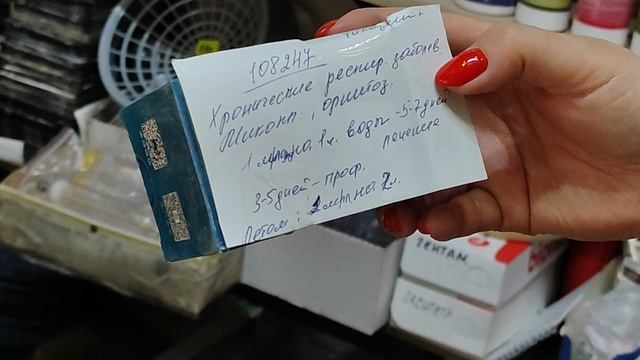 108247
Хронические респир. заболев.
Микопл., орнитоз.
1 мл на 1 л. воды - 5-7 дней
лечение
3-5 дней - проф.
Летом: 1 мл на 2 л.
ТЕНТАМ